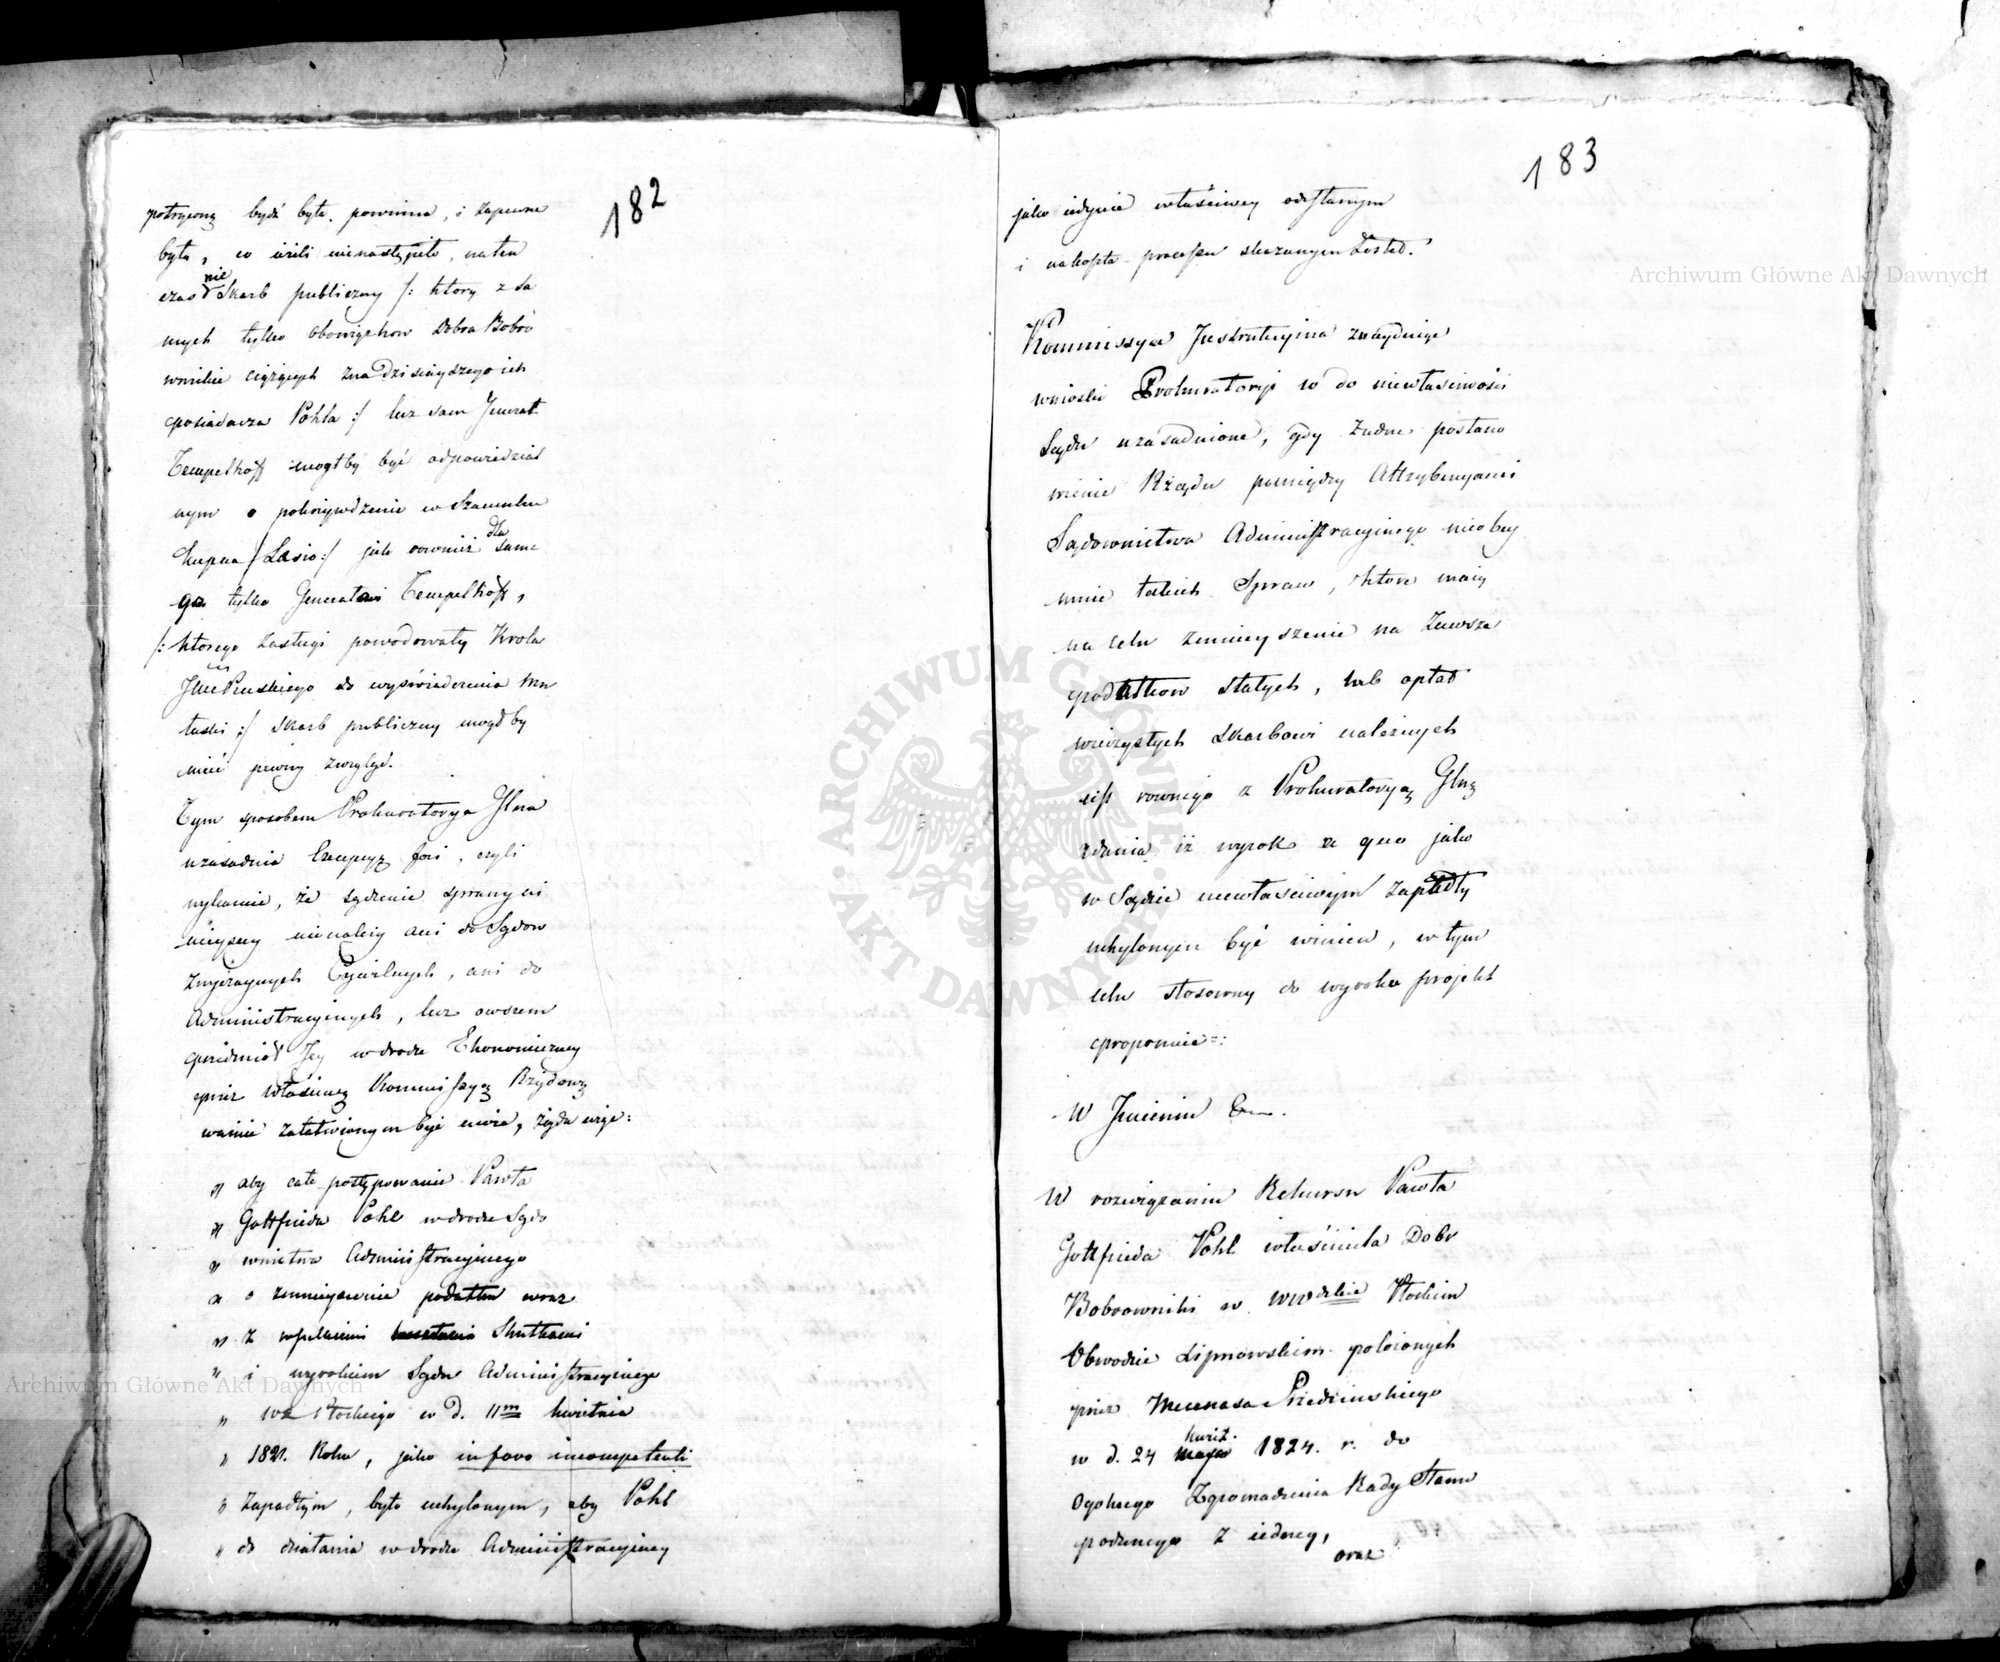 182
potrąconą bydź była powinna, i zapewne
była, co ieżeli nienastąpiło, na ten
czas nie Skarb publiczny /: ktory z da
wnych tylko obowiązkow Dobra Bobro
wniki ciążących zna dzisieyszego ich
posiadacza Pohla :/ lecz sam Jenerał
Tempelhoff mogłby być odpowiedzial
nym o pokrzywdzenie w Szacunku
kupna
jak rownież dla same
go tylko Generała Tempelhoff,
/: ktorego zasługi powodowały Krola
Jmci Pruskiego do wyświadczenia Mu
łaski :/ Skarb publiczny mogłby
mieć pewny wzgląd.
Tym sposobem Prokuratorya Glna
uzasadnia Excepcyą fori, czyli
wykazanie, że sądzenie sprawy ni
nieyszey nienależy ani do Sądow
Zwyczaynych Cywilnych, ani do
Administracyinych, lecz owszem
przedmiot Jey w drodze Ekonomiczney
przez właściwą Kommissyą Rządową
załatwionym być winien, żąda więc:
„ aby całe postępowanie Pawła
„ Gottfrieda Pohl w drodze Sądo
„ wnictwa Administracyinego
„ o zmnieyszenie podatku wraz
„ z wszelkiemi Skutkami
„ i wyrokiem Sądu Administracyinego
„ Wa Płockiego w d. 11m kwietnia
„ 1821. Roku, jako in foro incompetenti
„ zapadłym, było uchylonym, aby Pohl
„ do działania w drodze Administracyiney
183
jako iedynie właściwey odesłanym
i na koszta processu skazanym został.
Kommissya Instrukcyina znayduiąc
wnioski Prokuratoryi co do niewłaściwości
Sądu uzasadnione, gdy żadne postano
wienie Rządu pomiędzy Attrybucyami
Sądownictwa Administracyinego nieobey
muie takich Spraw, ktore maią
na celu zmnieyszenie na zawsze
podatkow stałych, lub opłat
wieczystych Skarbowi należnych
iest rownego z Prokuratoryą Glną
zdania, iż wyrok a quo jako
w Sądzie niewłaściwym zapadły
uchylonym być winien, w tym
celu stosowny do wyroku projekt
proponuie:
W Jmieniu &c.
W rozwiązaniu Rekursu Pawła
Gottfrieda Pohl właściciela Dobr
Bobrowniki w Wwdztwie Płockim
Obwodzie Lipnowskim położonych
przez Mecenasa
w d. 24 kwiet. 1824. r. do
Ogolnego Zgromadzenia Rady Stanu
podanego z iedney,
oraz
Archiwum Główne Akt Dawnych
Archiwum Główne Akt Dawnych
ARCHIWUM GŁÓWNE · AKT DAWNYCH ·